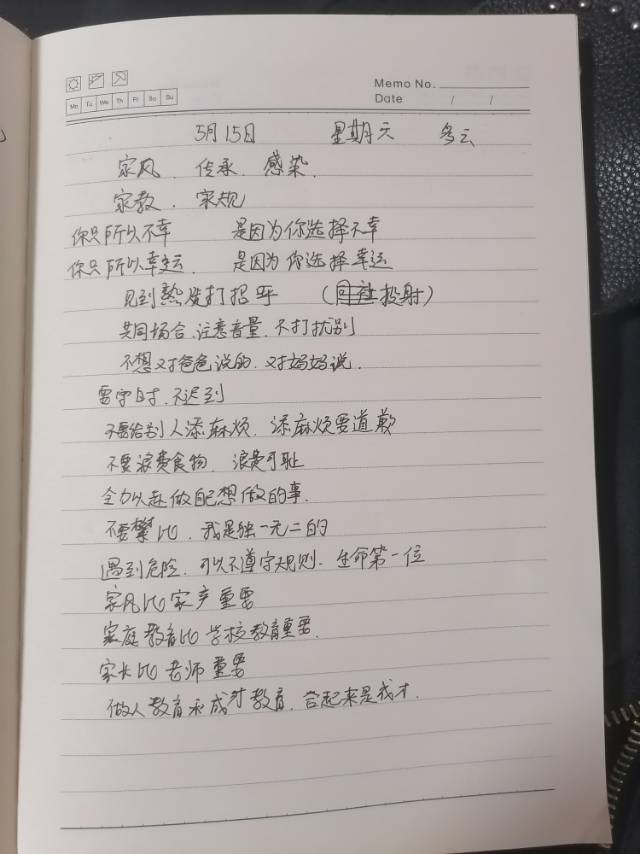 Memo No.
Mo Tu We Th Fr Sa Su
Date / /
5月15日 星期天 多云
家风、传承、感染、
家教、家规
你只所以不幸 是因为你选择不幸
你只所以幸运、 是因为你选择幸运
见到熟人打招呼 ( 投射)
共同场合、注意音量、不打扰别
不想对爸爸说的、对妈妈说、
要守时、不迟到
不要给别人添麻烦、添麻烦要道歉
不要浪费食物、浪费可耻
全力以赴做自己想做的事、
不要攀比、我是独一无二的
遇到危险、可以不遵守规则、生命第一位
家风比家产重要
家庭教育比学校教育重要、
家长比老师重要
做人教育 成才教育、合起来是 才、